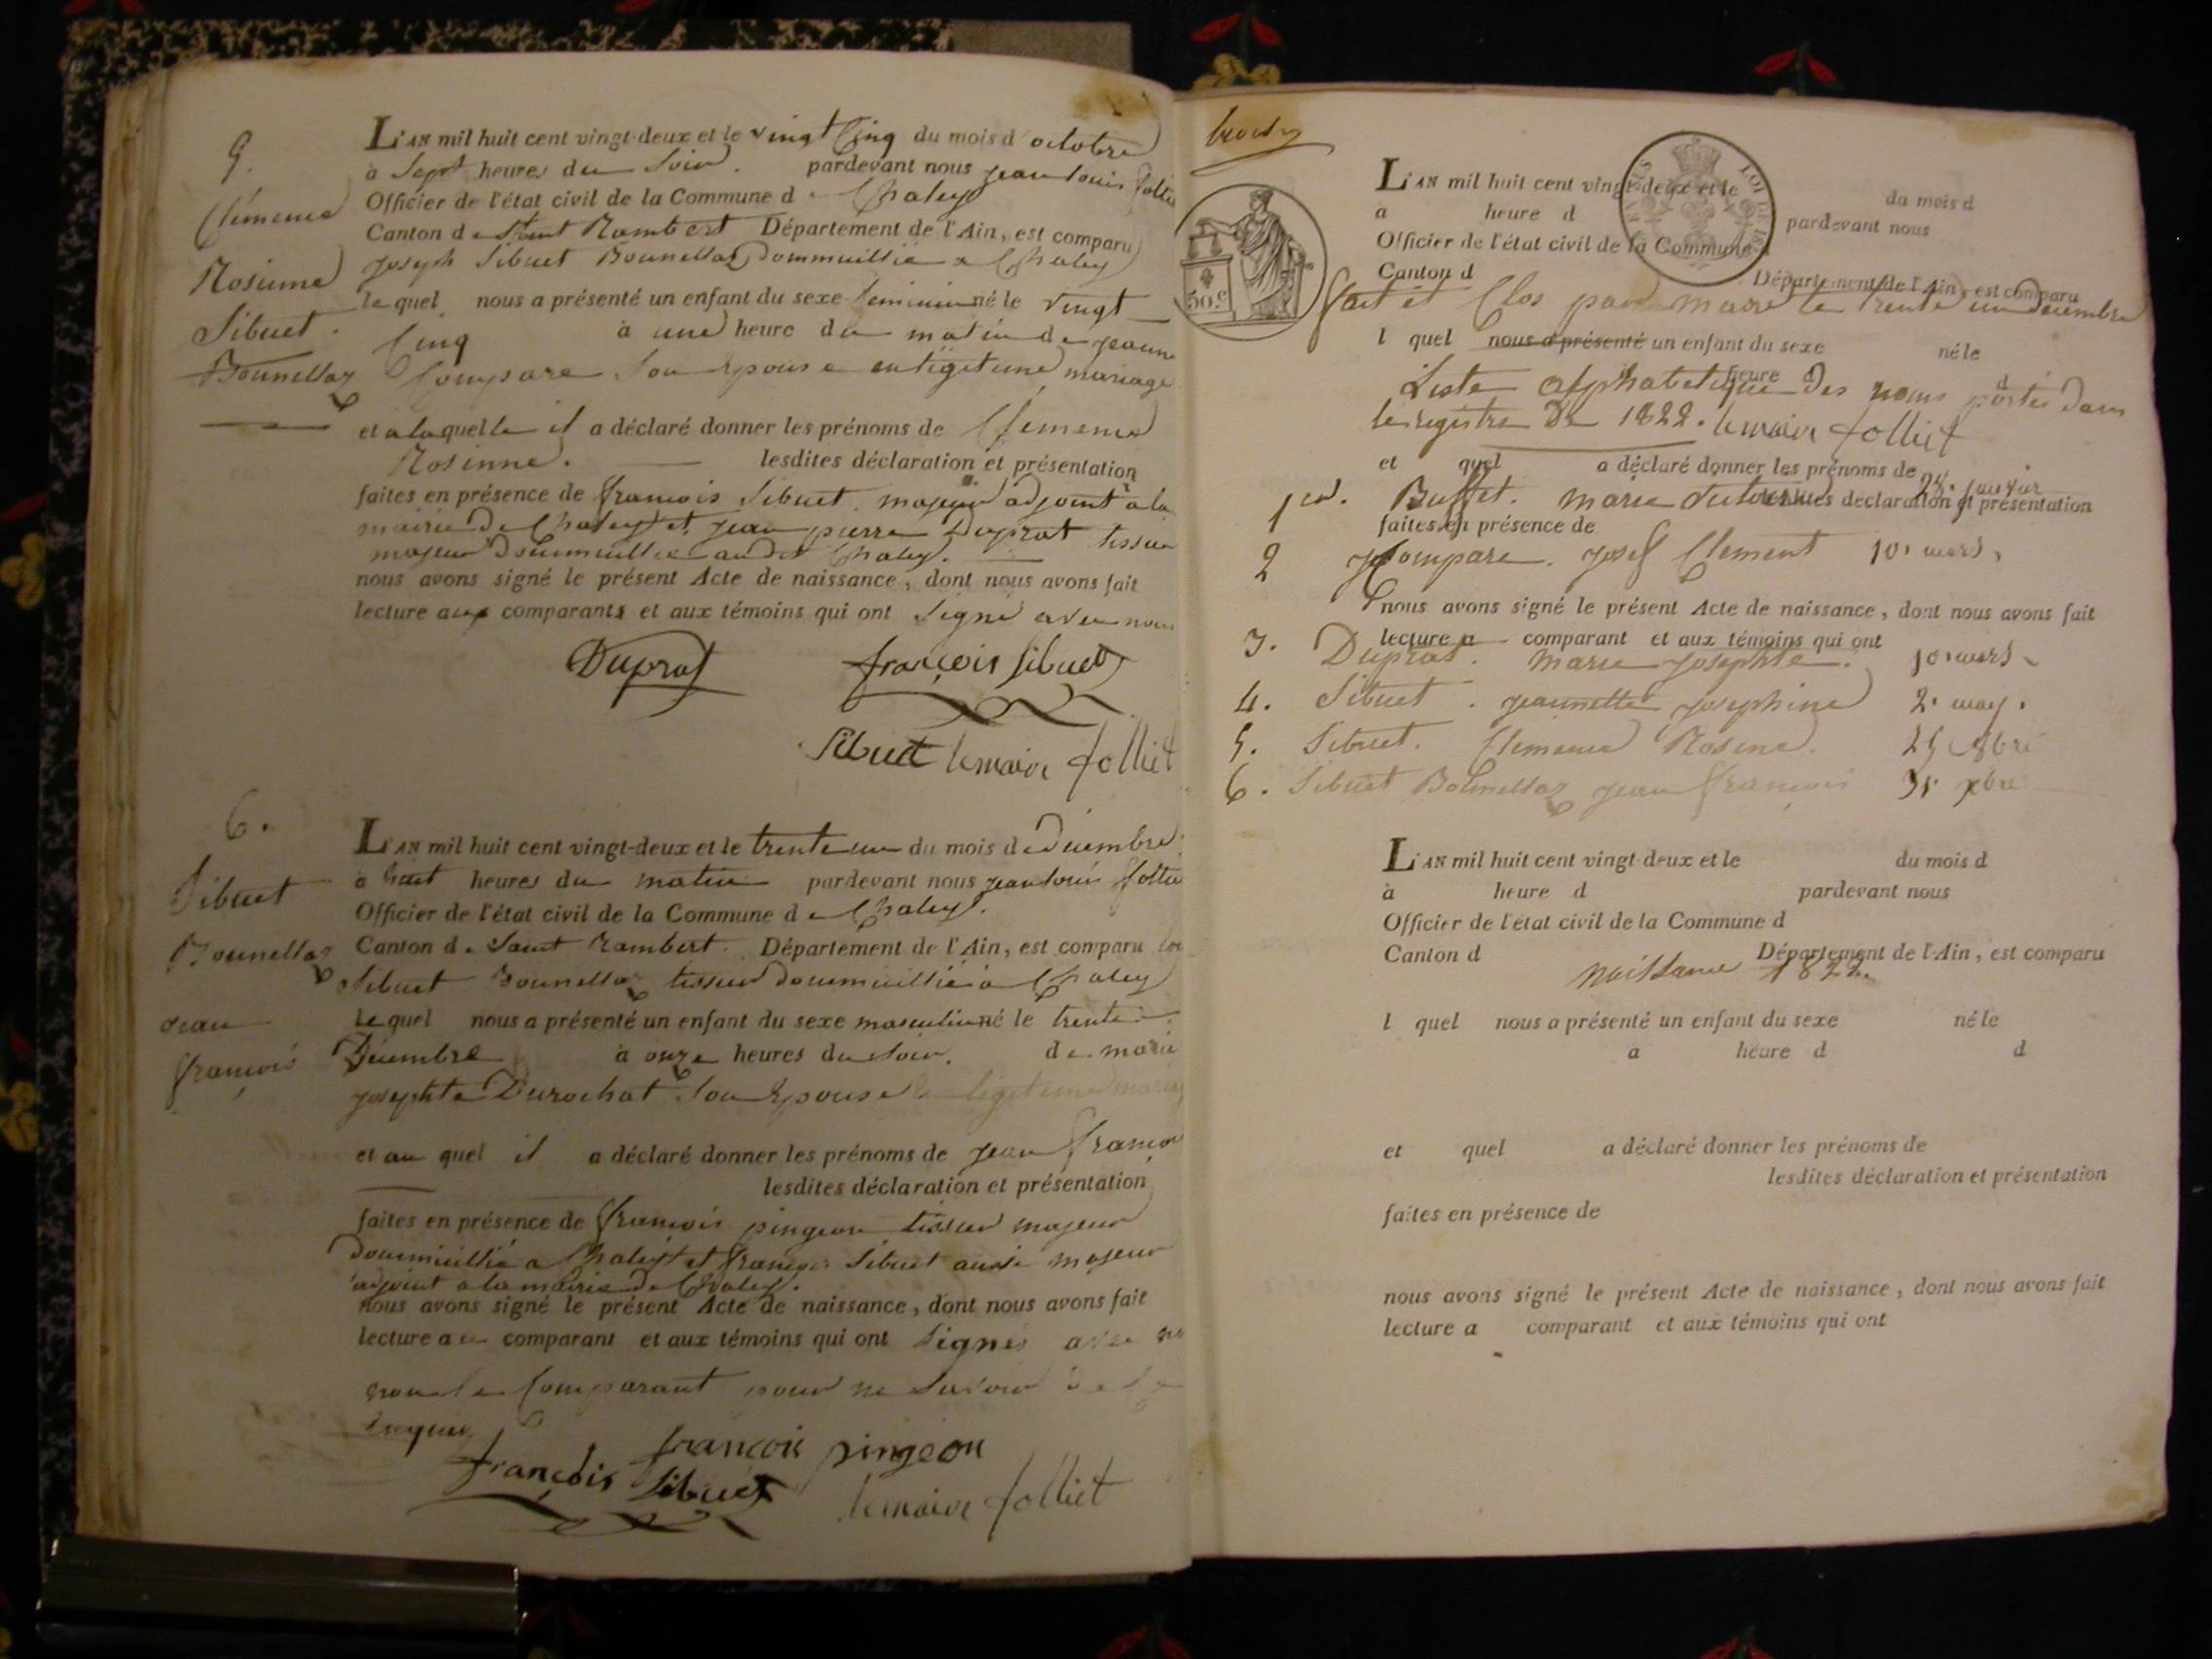 5.
Clémence
Rosinne
Sibuet
Bounellaz
L'AN mil huit cent vingt-deux et le vingt Cinq du mois d octobre
à Sept heures du Soir. pardevant nous jean louis folliet
Officier de l'état civil de la Commune de Chaley
Canton de Saint Rambert Département de l'Ain, est comparu
joseph Sibuet Bounellaz Dommicillié a Chaley
lequel nous a présenté un enfant du sexe feminin né le vingt
Cinq à une heure du matin de jeanne
Compare Son Epouse en légitime mariage
et a laquelle il a déclaré donner les prénoms de Clémence
Rosinne. lesdites déclaration et présentation
faites en présence de françois Sibuet majeur adjoint à la
mairie de Chaley et jean pierre Duprat tissier
majeur Dommicillié au dit Chaley.
nous avons signé le présent Acte de naissance, dont nous avons fait
lecture aux comparants et aux témoins qui ont Signé avec nous
Duprat françois Sibuet
Sibuet lemaire folliet
6.
Sibuet
Bounellaz
jean
françois
L'AN mil huit cent vingt-deux et le trente un du mois de Décembre
à huit heures du matin pardevant nous jean louis folliet
Officier de l'état civil de la Commune de Chaley.
Canton de Saint Rambert. Département de l'Ain, est comparu
Sibuet Bounellaz tissier Dommicillié a Chaley
lequel nous a présenté un enfant du sexe masculin né le trente
Décembre à onze heures du Soir. de marie
josephte Durochat Son Epouse legitime mariage
et au quel il a déclaré donner les prénoms de jean françois
lesdites déclaration et présentation
faites en présence de françois pingeon tissier majeur
Dommicillié a Chaley et françois Sibuet aussi majeur
adjoint a la mairie de Chaley.
nous avons signé le présent Acte de naissance, dont nous avons fait
lecture a ce comparant et aux témoins qui ont Signés avec
non le Comparant pour ne Savoir de ce
Enquis
françois pingeon
françois Sibuet lemaire folliet
L'AN mil huit cent vingt-deux et le du mois d
a heure d pardevant nous
Officier de l'état civil de la Commune
Canton d Département de l'Ain, est comparu
50.c
fait et Clos par maire le trente un Decembre
l quel nous a présenté un enfant du sexe né le
heure d d
Liste alphabetique Des noms portés Dans
le registre De 1822. lemaire folliet
et quel a déclaré donner les prénoms de
1er. Buffet. marie 25. janvier
lesdites déclaration et présentation
faites en présence de
2 Compare. josef Clement 10. mars.
nous avons signé le présent Acte de naissance, dont nous avons fait
lecture a comparant et aux témoins qui ont
3. Duprat. marie josephte. 10. mars
4. Sibuet. jeannette josephine 2. may.
5. Sibuet. Clemence Rosine. 25 8bre
6. Sibuet Bounellaz jean françois 31. xbre
L'AN mil huit cent vingt-deux et le du mois d
à heure d pardevant nous
Officier de l'état civil de la Commune d
Canton d Département de l'Ain, est comparu
naissance 1822.
l quel nous a présenté un enfant du sexe né le
a heure d d
et quel a déclaré donner les prénoms de
lesdites déclaration et présentation
faites en présence de
nous avons signé le présent Acte de naissance, dont nous avons fait
lecture a comparant et aux témoins qui ont